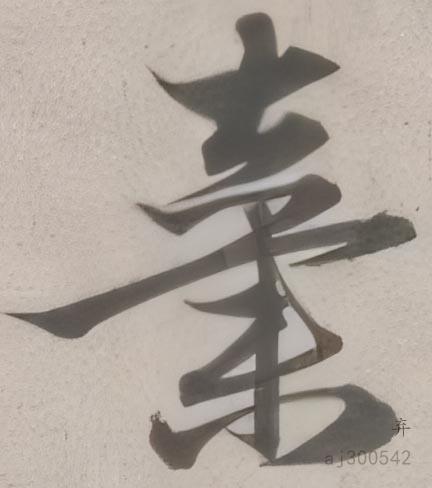 棄
弃
aj300542